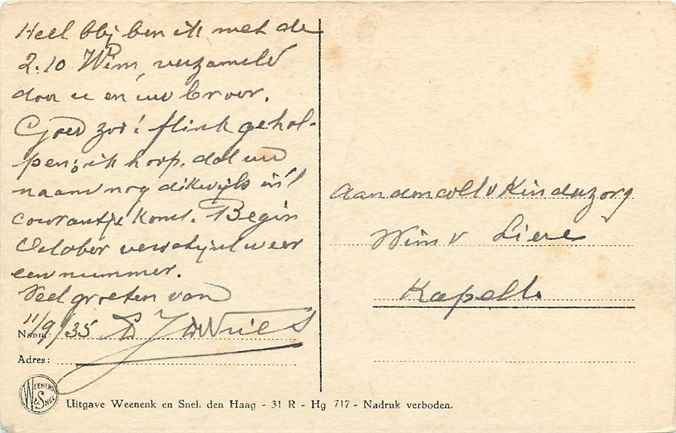 Heel blij ben ik met de
2.10 Wim, verzameld
door u en uw broer.
Goed zoo! flink gehol-
pen; ik hoop, dat uw
naam nog dikwijls in 't
courantje komt. Begin
October verschijnt weer
een nummer.
Veel groeten van
11/9/35 J de Vries
Naam:
Adres:
Aan den coll. v Kinderzorg
Wim v. Liere
Kapelle
WEENENK & SNEL
Uitgave Weenenk en Snel, den Haag - 31 R - Hg 717 - Nadruk verboden.